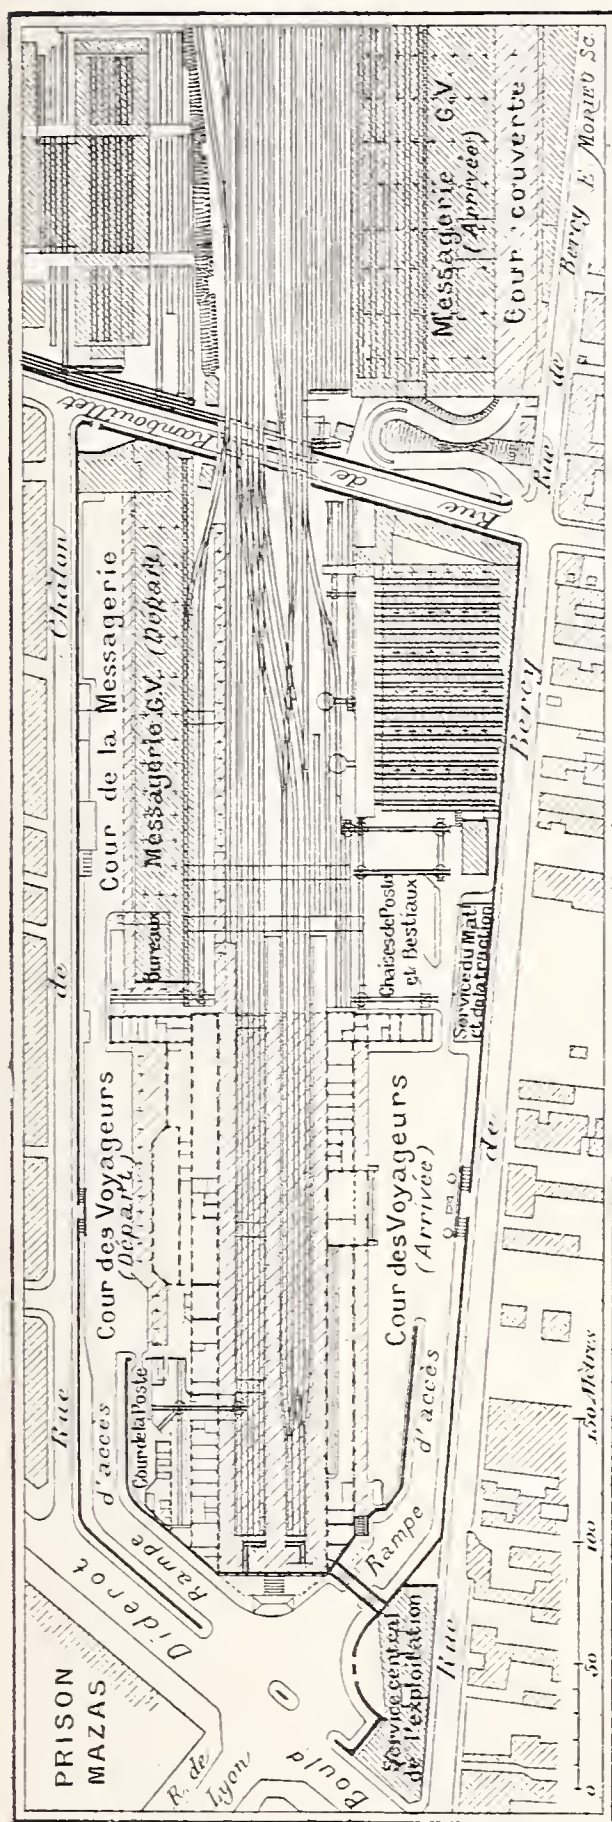 PRISON
MAZAS
R. de
Lyon
Bould
Diderot
Rue de Châlon
Rampe d'accès
Cour de la Poste
Cour des Voyageurs
(Départ)
Bureaux
Cour de la Messagerie
Messagerie G.V. (Départ)
Rue de Rambouillet
Service central
de l'exploitation
Rampe d'accès
Cour des Voyageurs
(Arrivée)
Chaises de Poste
et Bestiaux
Service du Matl
et de la traction
Messagerie G.V.
(Arrivée)
Cour couverte
Rue de Bercy
Rue de Bercy
E. MORIEU SC.
0 50 100 150 Mètres